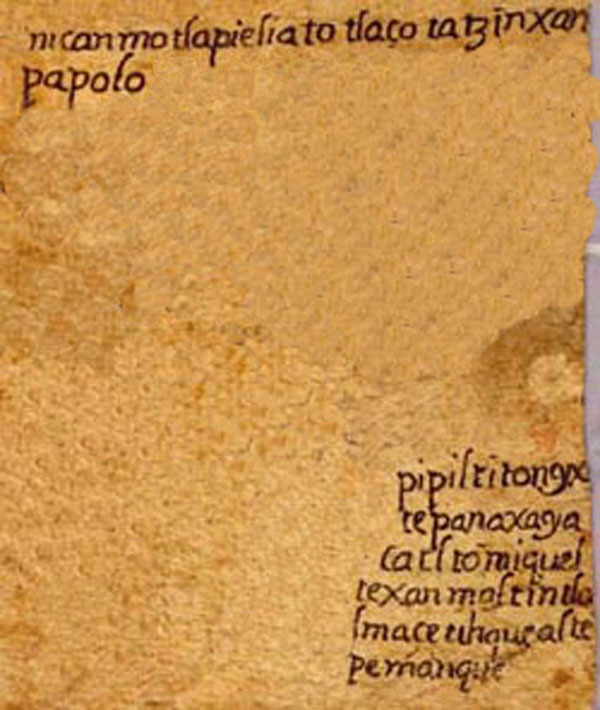 nican motlapielia to tlaço tatzin xan
papolo
pipiltitongox
tepanaxaya
catl tomiquel
texan maltin tla
lmaceuhque alte
pemanque